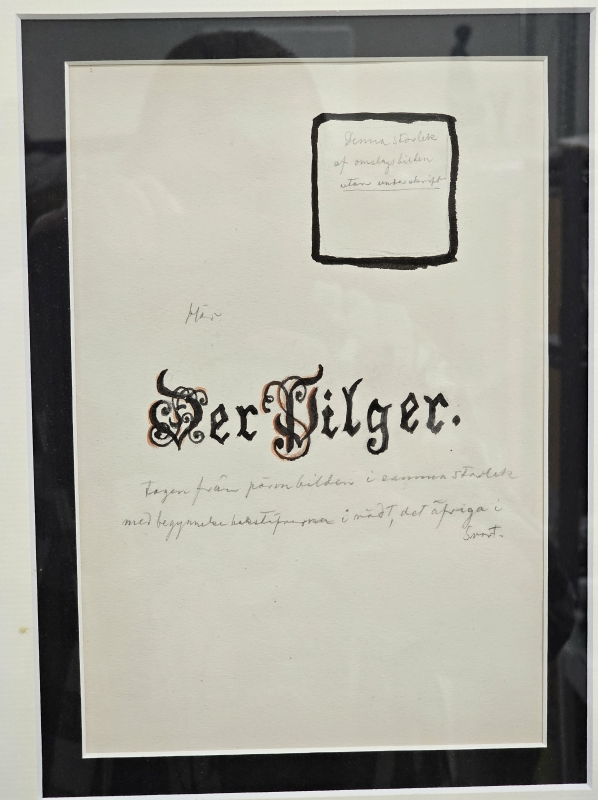 Denna storlek
af omslagsbilden
utan underskrift
Här
Der Pilger.
tagen från pärmbilden i samma storlek
med begynnelsebokstäfverna i rödt, det öfriga i
svart.